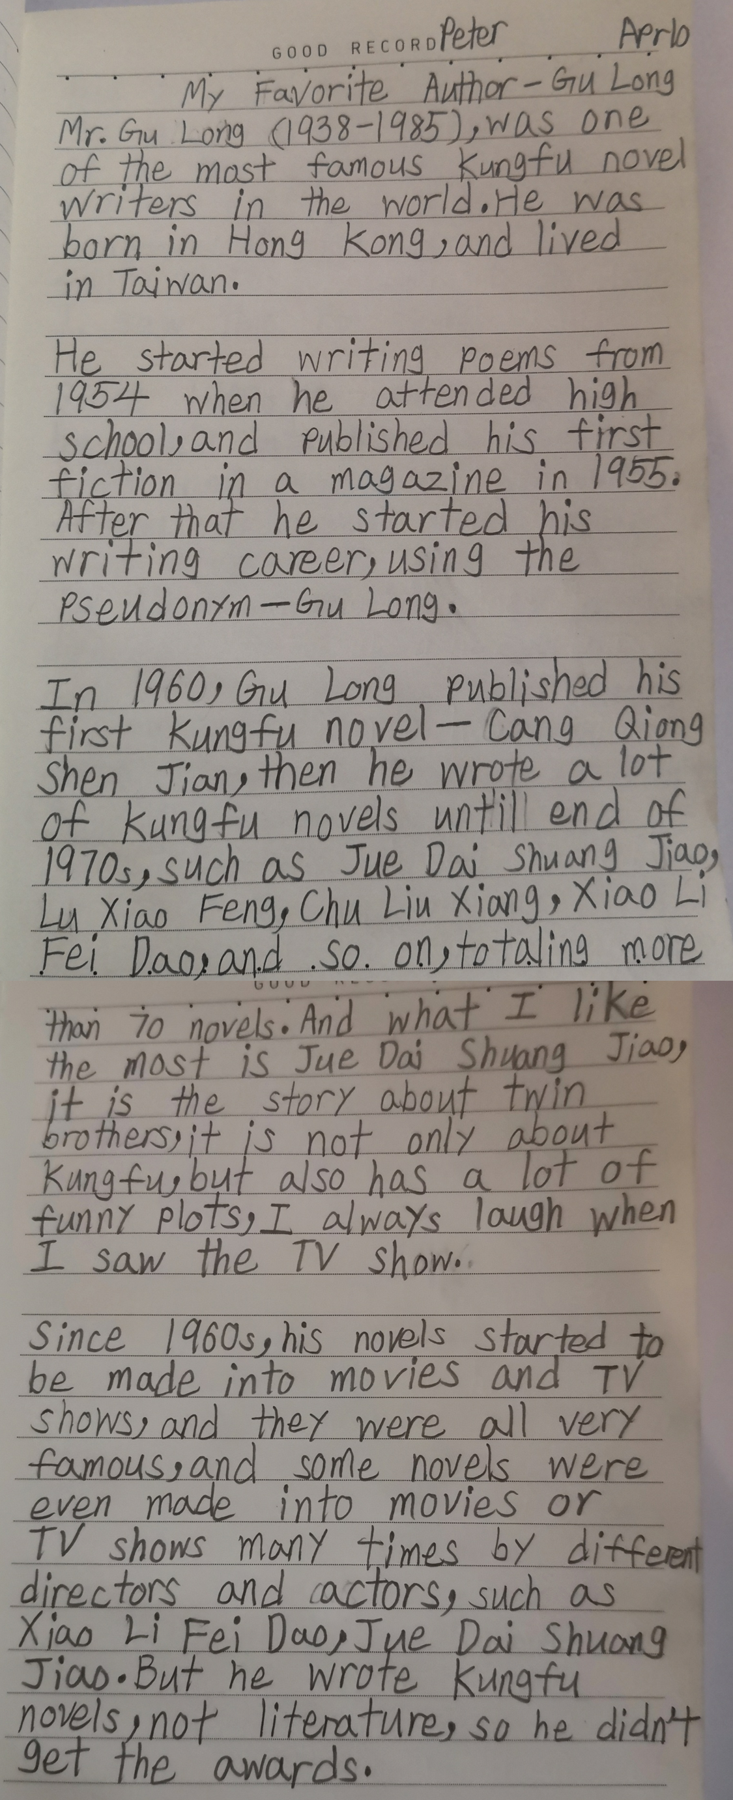 GOOD RECORD Peter Apr10
My Favorite Author-Gu Long
Mr. Gu Long (1938-1985), was one
of the most famous kungfu novel
writers in the world. He was
born in Hong Kong, and lived
in Taiwan.
He started writing poems from
1954 when he attended high
school, and published his first
fiction in a magazine in 1955.
After that he started his
writing career, using the
pseudonym—Gu Long.
In 1960, Gu Long published his
first kungfu novel— Cang Qiong
Shen Jian, then he wrote a lot
of kungfu novels untill end of
1970s, such as Jue Dai Shuang Jiao,
Lu Xiao Feng, Chu Liu Xiang, Xiao Li
Fei Dao, and so on, totaling more
GOOD
than 70 novels. And what I like
the most is Jue Dai Shuang Jiao,
it is the story about twin
brothers, it is not only about
kungfu, but also has a lot of
funny plots, I always laugh when
I saw the TV show.
Since 1960s, his novels started to
be made into movies and TV
shows, and they were all very
famous, and some novels were
even made into movies or
TV shows many times by different
directors and actors, such as
Xiao Li Fei Dao, Jue Dai Shuang
Jiao. But he wrote kungfu
novels, not literature, so he didn't
get the awards.